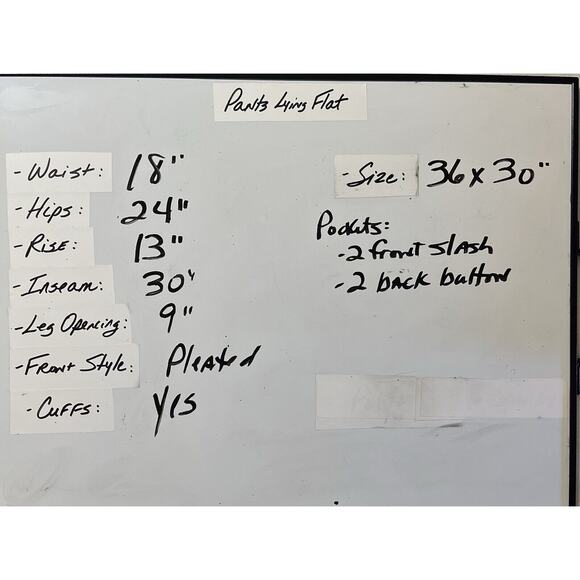 Pants Lying Flat
- Waist: 18"
- Hips: 24"
- Rise: 13"
- Inseam: 30"
- Leg Opening: 9"
- Front Style: Pleated
- Cuffs: Yes
- Size: 36 x 30"
Pockets:
- 2 front slash
- 2 back button